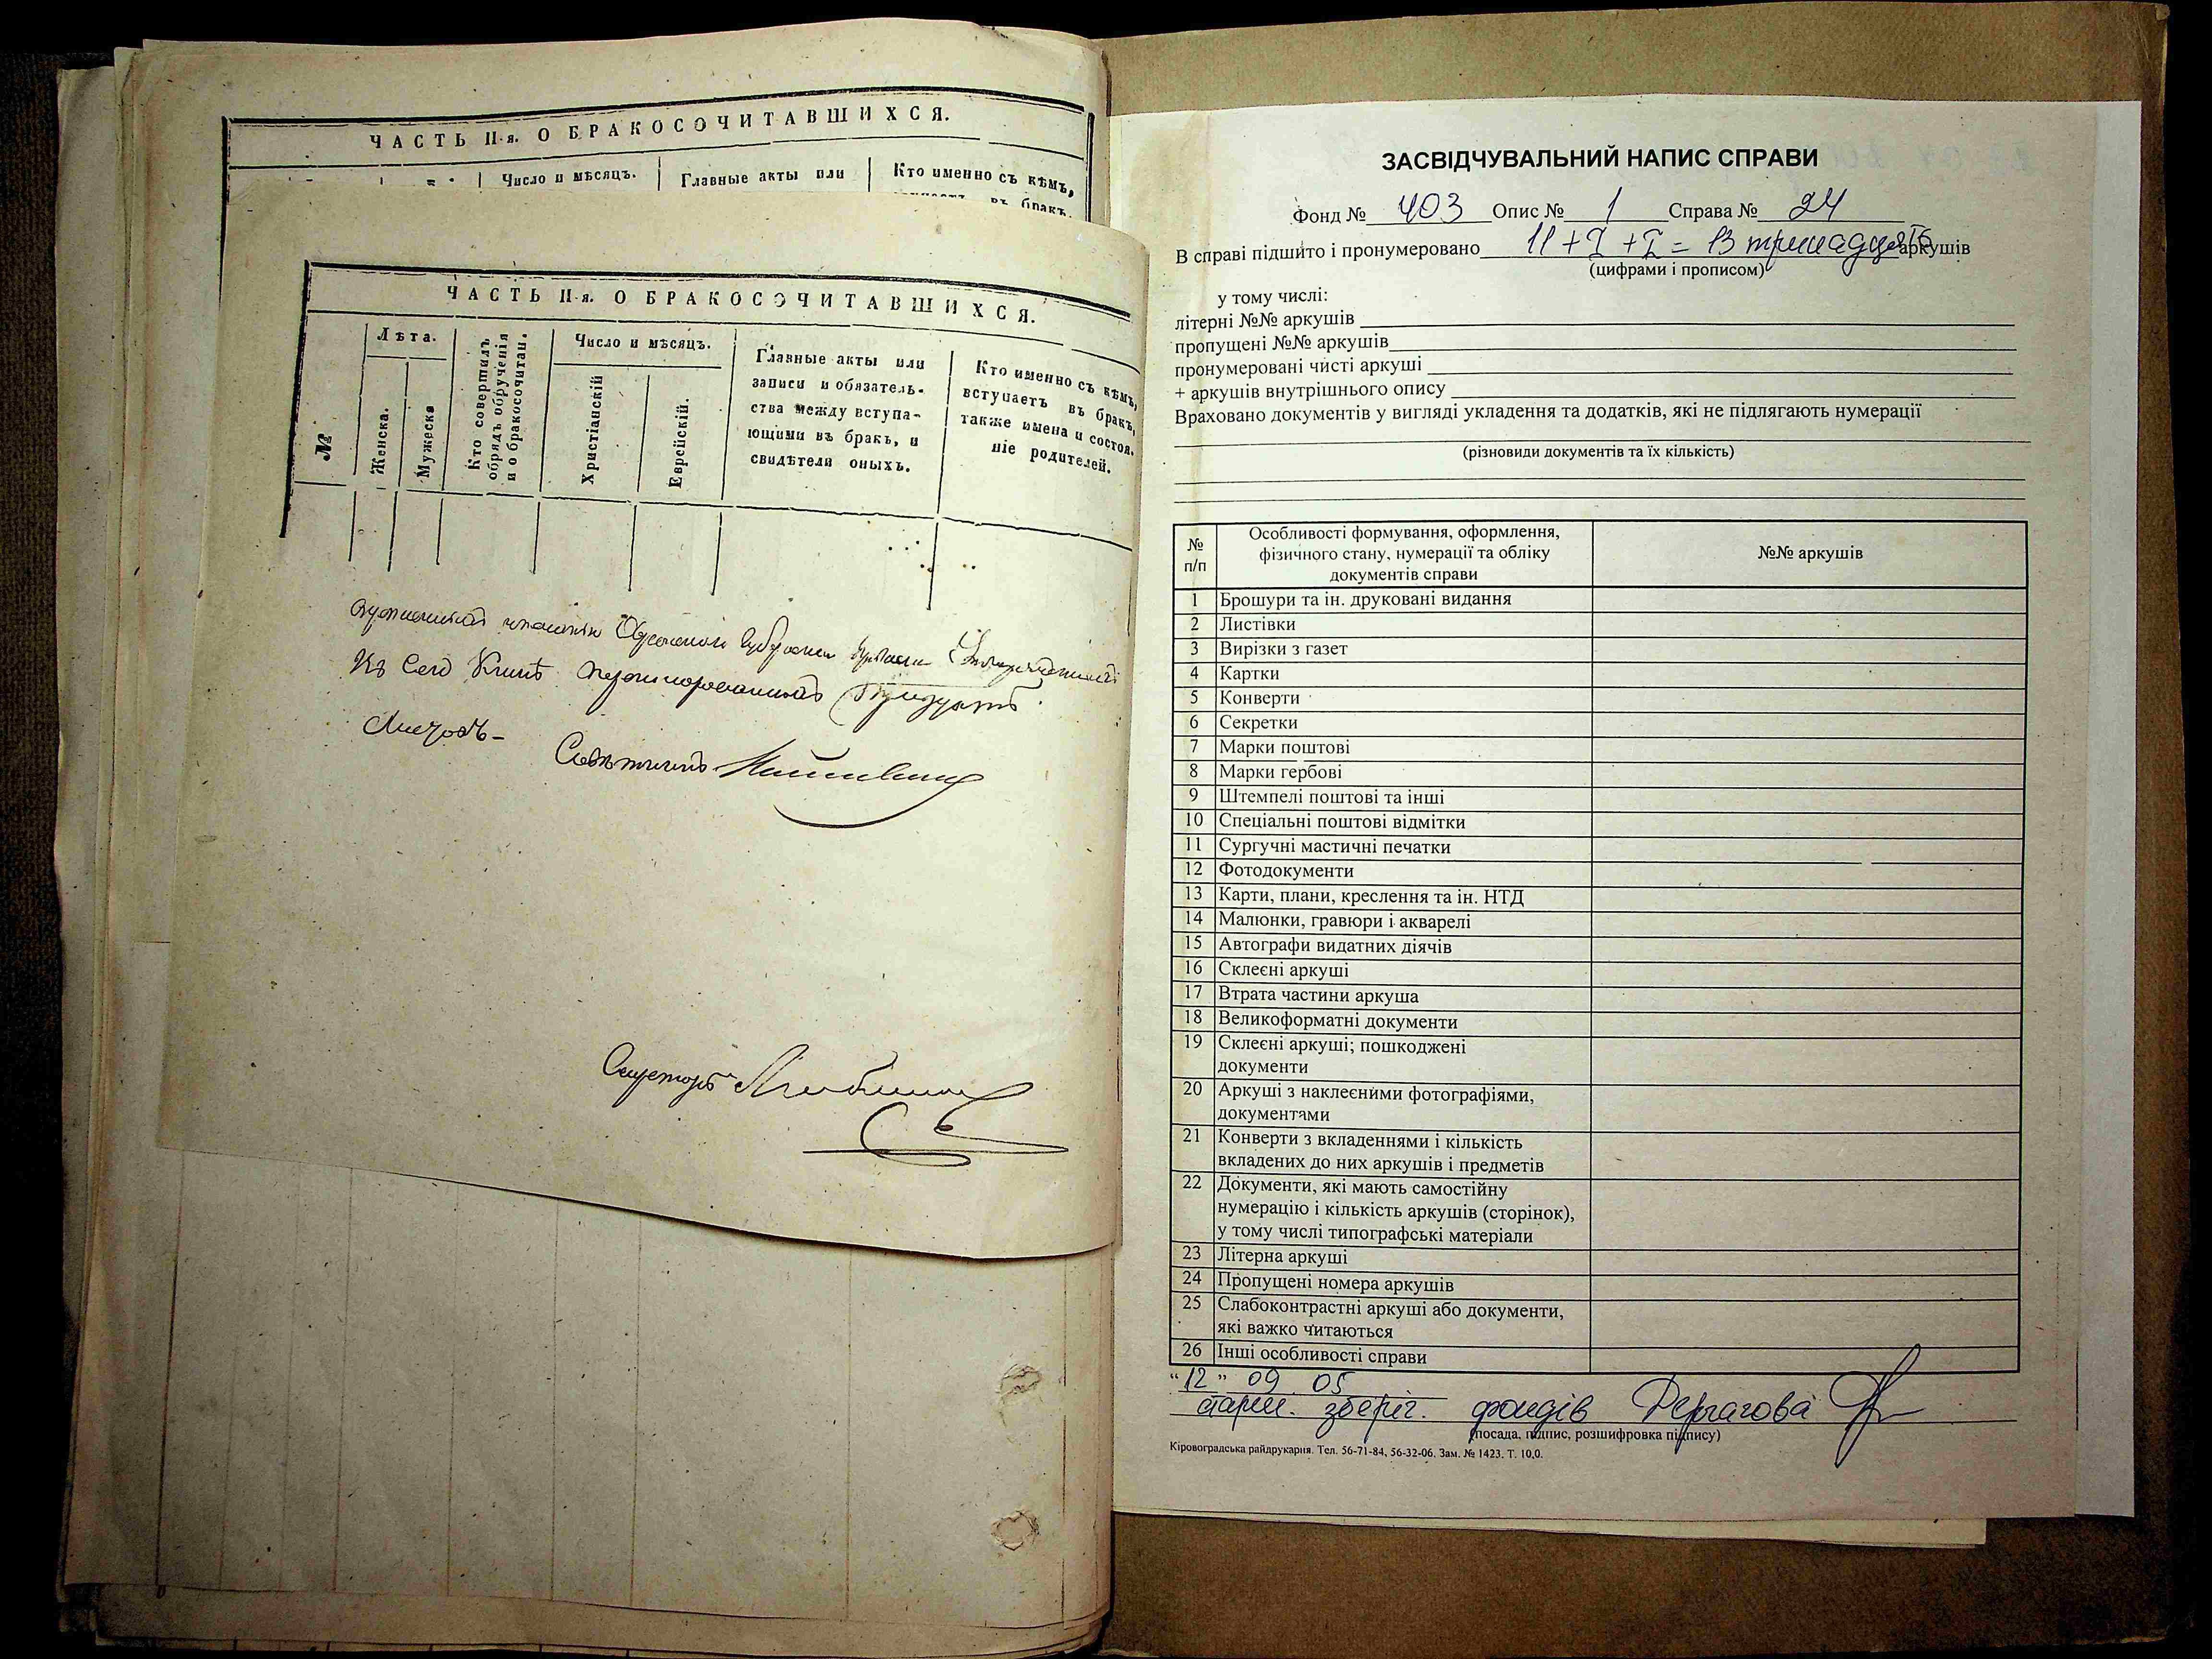 ЧАСТЬ II-я. О БРАКОСОЧИТАВШИХСЯ.
Число и мѣсяцъ.
Главные акты или
Кто именно съ кѣмъ,
въ бракъ,
ЧАСТЬ II-я. О БРАКОСОЧИТАВШИХСЯ.
№
Лѣта.
Женска.
Мужеска
Кто совершилъ
обрядъ обрученія
и о бракосочитан.
Число и мѣсяцъ.
Христіанскій
Еврейскій.
Главные акты или
записи и обязатель-
ства между вступа-
ющими въ бракъ, и
свидѣтели оныхъ.
Кто именно съ кѣмъ,
вступаетъ въ бракъ,
также имена и состоя-
ніе родителей.
Къ сей Книгѣ
Листовъ-
Совѣтникъ
Секретарь
ЗАСВІДЧУВАЛЬНИЙ НАПИС СПРАВИ
Фонд № 403 Опис № 1 Справа № 24
В справі підшито і пронумеровано 11 + I + I = 13 тринадцять аркушів
(цифрами і прописом)
у тому числі:
літерні №№ аркушів
пропущені №№ аркушів
пронумеровані чисті аркуші
+ аркушів внутрішнього опису
Враховано документів у вигляді укладення та додатків, які не підлягають нумерації
(різновиди документів та їх кількість)
№ п/п
Особливості формування, оформлення,
фізичного стану, нумерації та обліку
документів справи
№№ аркушів
1 Брошури та ін. друковані видання
2 Листівки
3 Вирізки з газет
4 Картки
5 Конверти
6 Секретки
7 Марки поштові
8 Марки гербові
9 Штемпелі поштові та інші
10 Спеціальні поштові відмітки
11 Сургучні мастичні печатки
12 Фотодокументи
13 Карти, плани, креслення та ін. НТД
14 Малюнки, гравюри і акварелі
15 Автографи видатних діячів
16 Склеєні аркуші
17 Втрата частини аркуша
18 Великоформатні документи
19 Склеєні аркуші; пошкоджені
документи
20 Аркуші з наклеєними фотографіями,
документами
21 Конверти з вкладеннями і кількість
вкладених до них аркушів і предметів
22 Документи, які мають самостійну
нумерацію і кількість аркушів (сторінок),
у тому числі типографські матеріали
23 Літерна аркуші
24 Пропущені номера аркушів
25 Слабоконтрастні аркуші або документи,
які важко читаються
26 Інші особливості справи
“12” 09 05
зберіг. фондів Дергачова
(посада, підпис, розшифровка підпису)
Кіровоградська райдрукарня. Тел. 56-71-84, 56-32-06. Зам. № 1423. Т. 10,0.